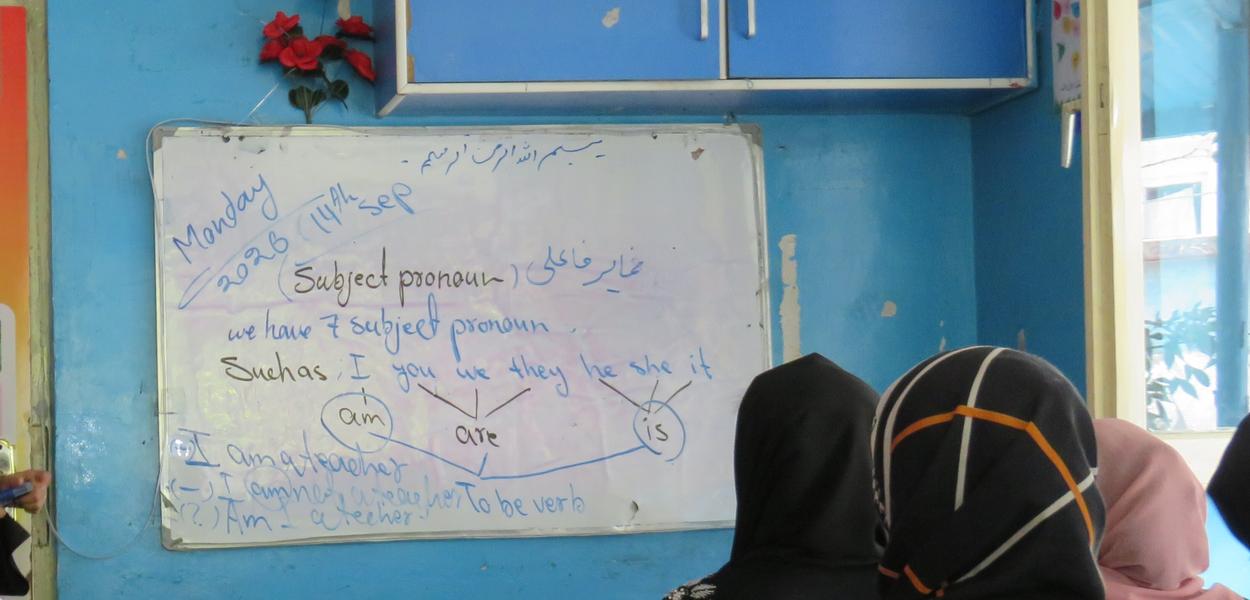 بسم الله الرحمن الرحیم
Monday
2026 14th Sep
(Subject pronoun) ضمایر فاعلی
we have 7 subject pronoun
Such as I you we they he she it
am are is
I am a teacher
(-) I am not a teacher To be verb
(?) Am I a techer?